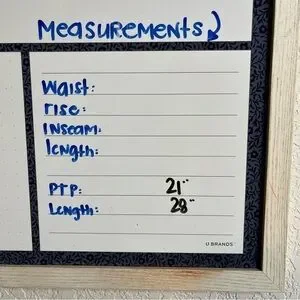 Measurements
Waist:
rise:
Inseam:
length:
PTP: 21"
Length: 28"
U BRANDS